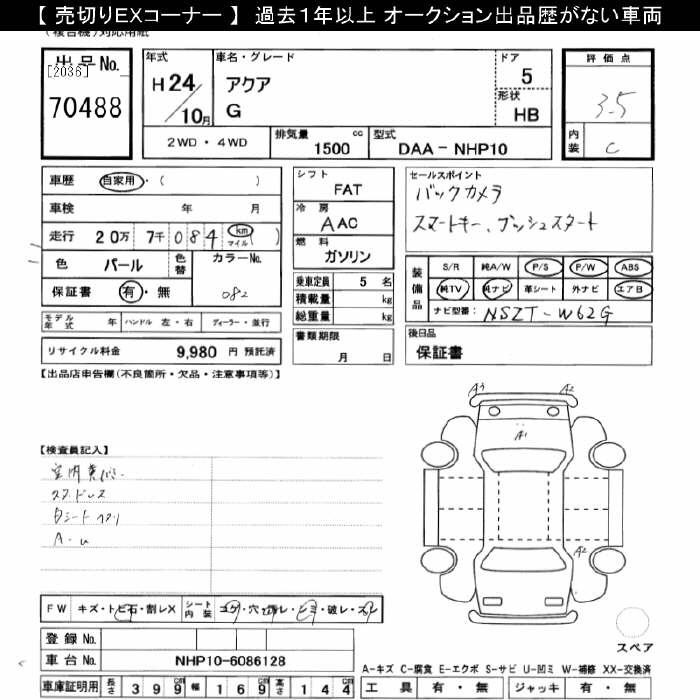 【 売切りEXコーナー 】 過去１年以上 オークション出品歴がない車両
(複合機)対応用紙
出品No.
[2036]
70488
年式
H 24/10月
車名・グレード
アクア
G
ドア
5
形状
HB
評価点
3.5
内装
C
2WD ・ 4WD
排気量
1500 cc
型式
DAA － NHP10
車歴 自家用・( )
車検 年 月
走行 20万 7千 084 km マイル ( )
色 パール 色替 カラーNo.
保証書 有・無 082
モデル年式 年 ハンドル 左・右 ディーラー・並行
リサイクル料金 9,980 円 預託済
シフト
FAT
冷房
AAC
燃料
ガソリン
乗車定員 5 名
積載量 kg
総重量 kg
書類期限
月 日
セールスポイント
バックカメラ
スマートキー、プッシュスタート
装備品
S/R 純A/W P/S P/W ABS
純TV 純ナビ 革シート 外ナビ エアB
ナビ型番: NSZT-W62G
後日品
保証書
【出品店申告欄(不良箇所・欠品・注意事項等)】
【検査員記入】
スタッドレス
A・U
A3
A2
A1
A2
スペア
FW キズ・トビ石・割レX シート内装 コゲ・穴・スレ・シミ・破レ・スレ
登録 No.
車台 No. NHP10-6086128
車庫証明用 長さ 399 cm 幅 169 cm 高さ 144 cm
A-キズ C-腐食 E-エクボ S-サビ U-凹ミ W-補修 XX-交換済
工具 有・無 ジャッキ 有・無